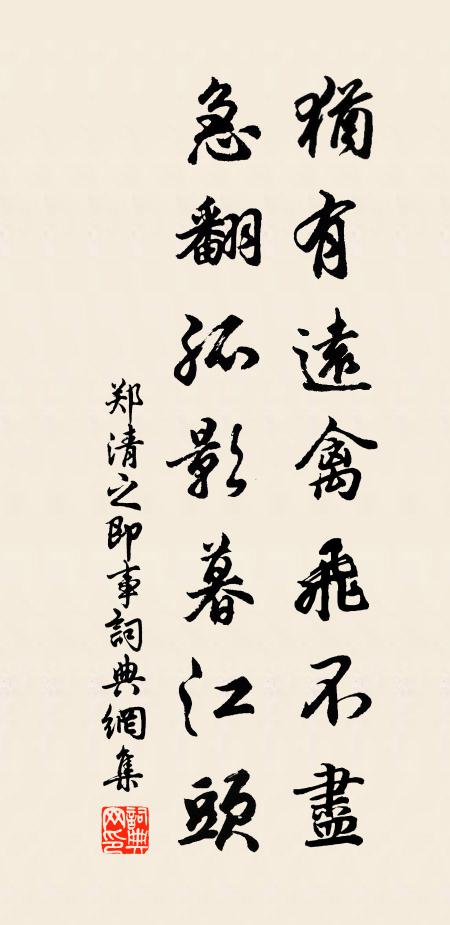 猶有遠禽飛不盡
急翻孤影暮江頭
郑清之即事詞典網集
詞典網印